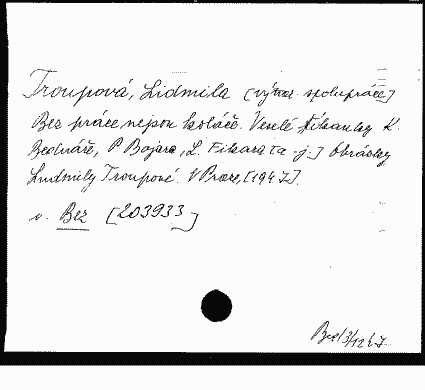 Troupová, Lidmila [výtvar. spolupráce]
Bez práce nejsou koláče. Veselé říkanky K.
Bednáře, P. Bojara, L. Fikara [a j.] Obrázky
Ludmily Troupové. V Praze, [1947].
v. Bez [203933]